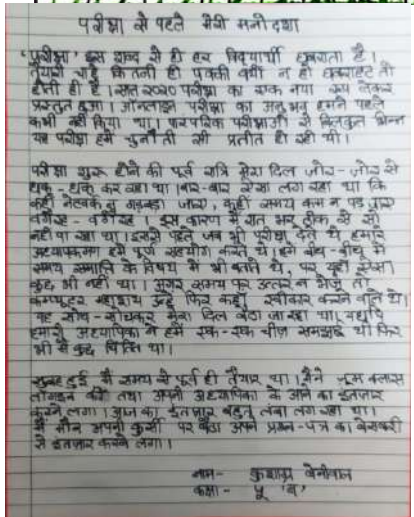 परीक्षा से पहले मेरी मनोदशा
'परीक्षा' इस शब्द से ही हर विद्यार्थी घबराता है।
तैयारी चाहे कितनी ही पक्की क्यों न हो घबराहट तो
होती ही है। सन् २०२० परीक्षा का एक नया रूप लेकर
प्रस्तुत हुआ। ऑनलाइन परीक्षा का अनुभव हमने पहले
कभी नहीं किया था। पारंपरिक परीक्षाओं से बिल्कुल भिन्न
यह परीक्षा हमें चुनौती सी प्रतीत हो रही थी।
परीक्षा शुरू होने की पूर्व रात्रि मेरा दिल जोर-जोर से
धक-धक कर रहा था। बार-बार ऐसा लग रहा था कि
कहीं नेटवर्क न गड़बड़ा जाए, कहीं समय कम न पड़ जाए
वगैरह-वगैरह। इस कारण मैं रात भर ठीक से सो
नहीं पा रहा था। इससे पहले जब भी परीक्षा देते थे हमारे
अध्यापकगण हमें पूर्ण सहयोग करते थे। हमें बीच-बीच में
समय समाप्ति के विषय में भी बताते थे, पर यहाँ ऐसा
कुछ भी नहीं था। अगर समय पर उत्तर न भेजूँ तो
कम्प्यूटर महाशय उन्हें फिर कहाँ स्वीकार करने वाले थे।
यह सोच-सोचकर मेरा दिल बैठा जा रहा था, यद्यपि
हमारी अध्यापिका ने हमें एक-एक चीज़ समझाई थी फिर
भी मैं कुछ चिंतित था।
सुबह हुई मैं समय से पूर्व ही तैयार था। मैंने ज़ूम क्लास
लॉगइन की तथा अपनी अध्यापिका के आने का इंतज़ार
करने लगा। आज का इंतज़ार बहुत लंबा लग रहा था।
मैं मौन अपनी कुर्सी पर बैठा अपने प्रश्न-पत्र का बेसब्री
से इंतज़ार करने लगा।
नाम- कुशाग्र बेनीवाल
कक्षा- 'ब'